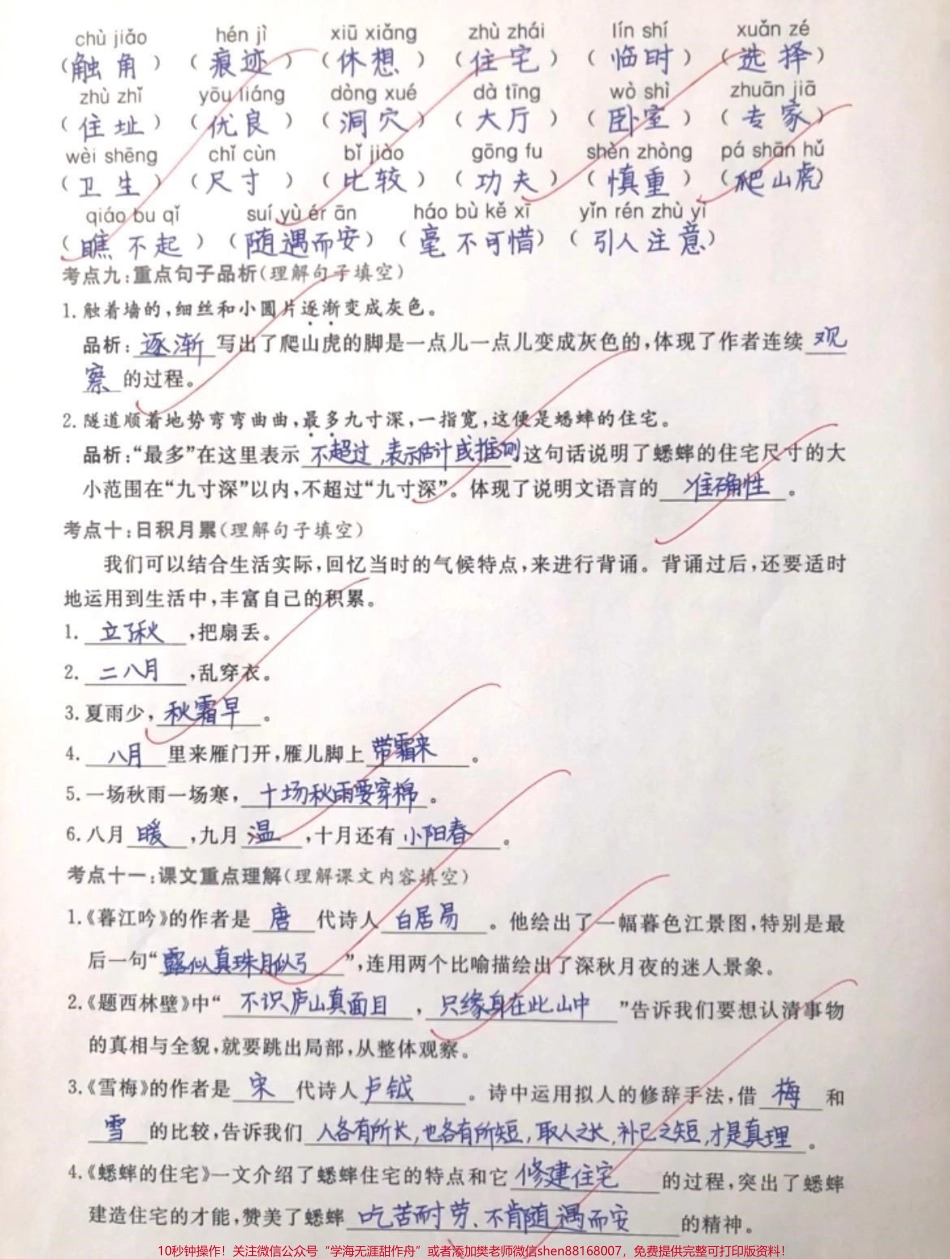 chù jiǎo hén jì xiū xiǎng zhù zhái lín shí xuǎn zé
(触角)(痕迹)(休想)(住宅)(临时)(选择)
zhù zhǐ yōu liáng dòng xué dà tīng wò shì zhuān jiā
(住址)(优良)(洞穴)(大厅)(卧室)(专家)
wèi shēng chǐ cùn bǐ jiào gōng fu shèn zhòng pá shān hǔ
(卫生)(尺寸)(比较)(功夫)(慎重)(爬山虎)
qiáo bu qǐ suí yù ér ān háo bù kě xī yǐn rén zhù yì
(瞧不起)(随遇而安)(毫不可惜)(引人注意)
考点九:重点句子品析(理解句子填空)
1.触着墙的,细丝和小圆片逐渐变成灰色。
品析:逐渐写出了爬山虎的脚是一点儿一点儿变成灰色的,体现了作者连续观
察的过程。
2.隧道顺着地势弯弯曲曲,最多九寸深,一指宽,这便是蟋蟀的住宅。
品析:“最多”在这里表示不超过,表示估计或推测这句话说明了蟋蟀的住宅尺寸的大
小范围在“九寸深”以内,不超过“九寸深”。体现了说明文语言的准确性。
考点十:日积月累(理解句子填空)
我们可以结合生活实际,回忆当时的气候特点,来进行背诵。背诵过后,还要适时
地运用到生活中,丰富自己的积累。
1.立了秋,把扇丢。
2.二八月,乱穿衣。
3.夏雨少,秋霜早。
4.八月里来雁门开,雁儿脚上带霜来。
5.一场秋雨一场寒,十场秋雨要穿棉。
6.八月暖,九月温,十月还有小阳春。
考点十一:课文重点理解(理解课文内容填空)
1.《暮江吟》的作者是唐代诗人白居易。他绘出了一幅暮色江景图,特别是最
后一句“露似真珠月似弓”,连用两个比喻描绘出了深秋月夜的迷人景象。
2.《题西林壁》中“不识庐山真面目,只缘身在此山中”告诉我们要想认清事物
的真相与全貌,就要跳出局部,从整体观察。
3.《雪梅》的作者是宋代诗人卢钺。诗中运用拟人的修辞手法,借梅和
雪的比较,告诉我们人各有所长,也各有所短,取人之长,补己之短,才是真理。
4.《蟋蟀的住宅》一文介绍了蟋蟀住宅的特点和它修建住宅的过程,突出了蟋蟀
建造住宅的才能,赞美了蟋蟀吃苦耐劳、不肯随遇而安的精神。
10秒钟操作!关注微信公众号“学海无涯甜作舟”或者添加樊老师微信shen88168007,免费提供完整可打印版资料!